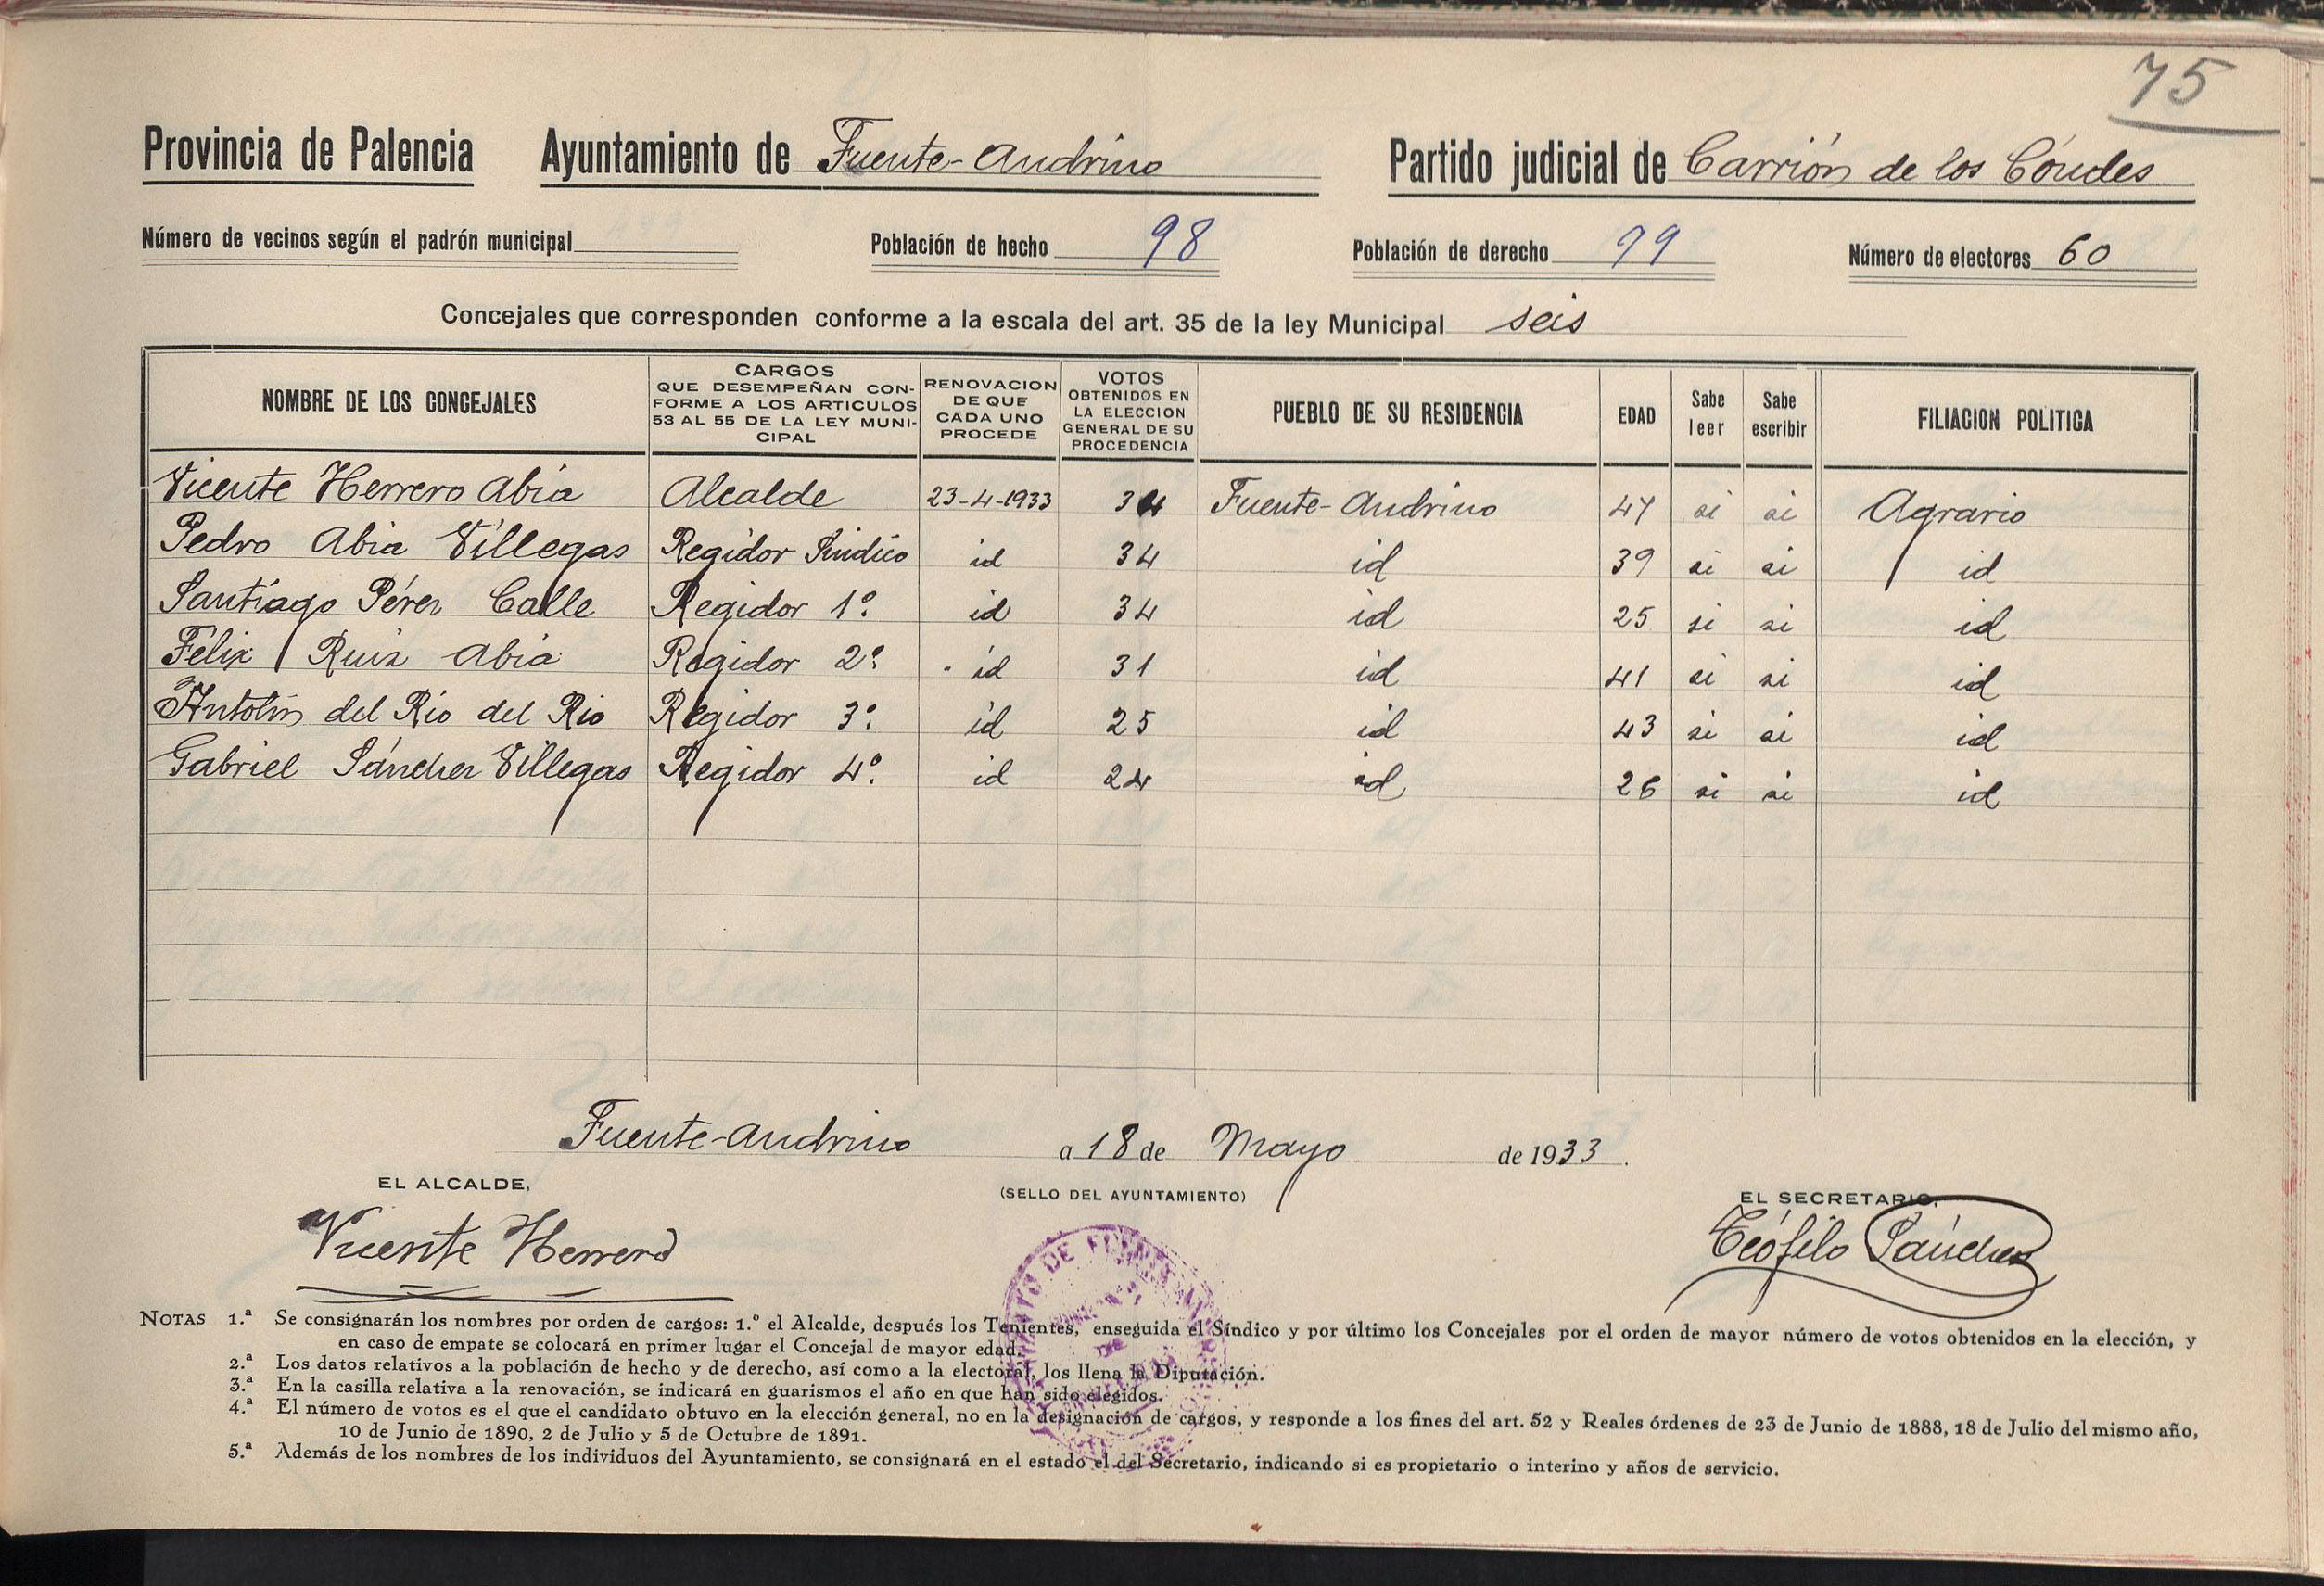 75
Provincia de Palencia Ayuntamiento de Fuente-Andrino Partido judicial de Carrión de los Cóndes
Número de vecinos según el padrón municipal Población de hecho 98 Población de derecho 99 Número de electores 60
Concejales que corresponden conforme a la escala del art. 35 de la ley Municipal seis
NOMBRE DE LOS CONCEJALES CARGOS QUE DESEMPEÑAN CONFORME A LOS ARTICULOS 53 AL 55 DE LA LEY MUNICIPAL RENOVACION DE QUE CADA UNO PROCEDE VOTOS OBTENIDOS EN LA ELECCION GENERAL DE SU PROCEDENCIA PUEBLO DE SU RESIDENCIA EDAD Sabe leer Sabe escribir FILIACION POLITICA
Vicente Herrero Abia Alcalde 23-4-1933 34 Fuente-Andrino 47 si si Agrario
Pedro Abia Villegas Regidor Sindico id 34 id 39 si si id
Santiago Pérez Calle Regidor 1º id 34 id 25 si si id
Félix Ruiz Abia Regidor 2º id 31 id 41 si si id
Antolín del Río del Rio Regidor 3º id 25 id 43 si si id
Gabriel Sánchez Villegas Regidor 4º id 24 id 26 si si id
Fuente-Andrino a 18 de Mayo de 1933.
EL ALCALDE, (SELLO DEL AYUNTAMIENTO) EL SECRETARIO,
Vicente Herrero Teófilo Sánchez
NOTAS 1.ª Se consignarán los nombres por orden de cargos: 1.º el Alcalde, después los Tenientes, enseguida el Síndico y por último los Concejales por el orden de mayor número de votos obtenidos en la elección, y
en caso de empate se colocará en primer lugar el Concejal de mayor edad.
2.ª Los datos relativos a la población de hecho y de derecho, así como a la electoral, los llena la Diputación.
3.ª En la casilla relativa a la renovación, se indicará en guarismos el año en que han sido elegidos.
4.ª El número de votos es el que el candidato obtuvo en la elección general, no en la designación de cargos, y responde a los fines del art. 52 y Reales órdenes de 23 de Junio de 1888, 18 de Julio del mismo año,
10 de Junio de 1890, 2 de Julio y 5 de Octubre de 1891.
5.ª Además de los nombres de los individuos del Ayuntamiento, se consignará en el estado el del Secretario, indicando si es propietario o interino y años de servicio.